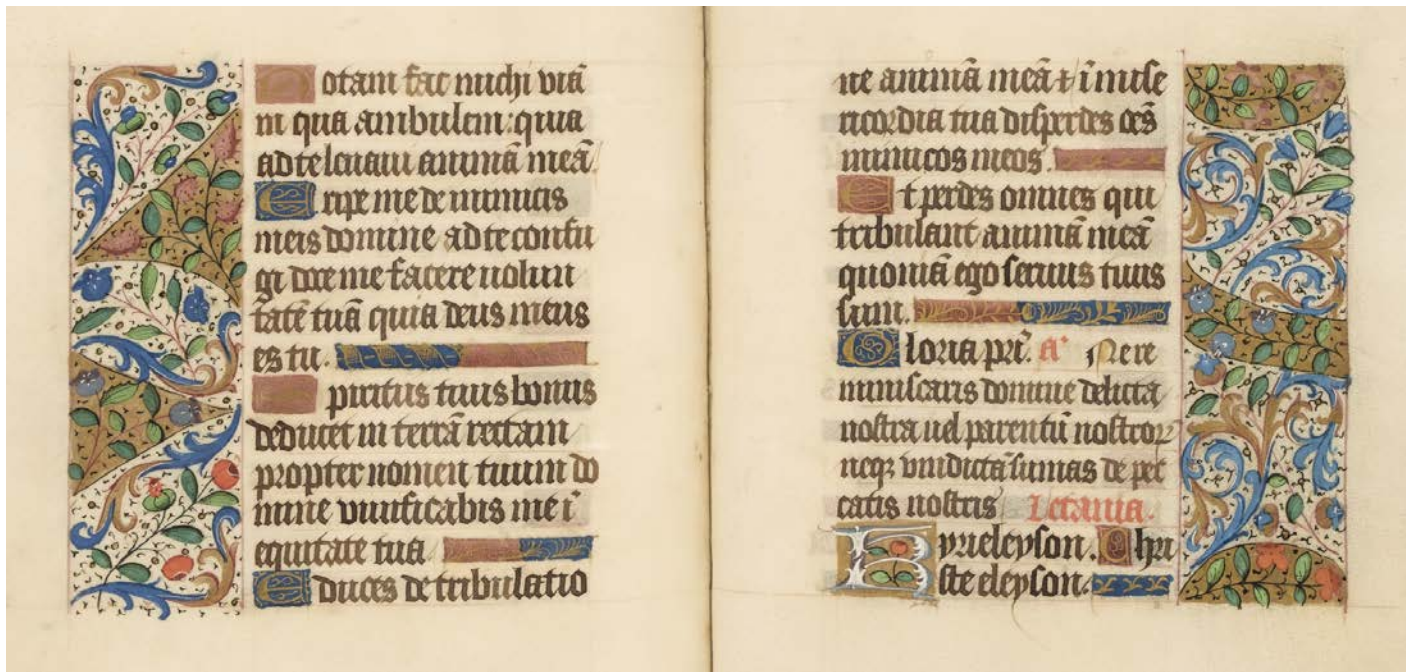 Notam fac michi viã
in qua ambulem: quia
ad te levaui animã meã.
Eripe me de inimicis
meis domine ad te confu
gi doce me facere uolun
tatẽ tuã quia deus meus
es tu.
Spiritus tuus bonus
deducet in terrã rectam
propter nomen tuum do
mine viuificabis me ĩ
equitate tua
Educes de tribulatio
ne animã meã ⁊ ĩ mise
ricordia tua disperdes oẽs
inimicos meos.
Et perdes omnes qui
tribulant animã meã
quoniã ego seruus tuus
sum.
Gloria pri̅. a᷒ Ne re
miniscaris domine delicta
nostra uel parentũ nostroꝝ
neqꝫ vindictã sumas de pec
catis nostris Letania.
Kyrieleyson. Chri
ste eleyson.